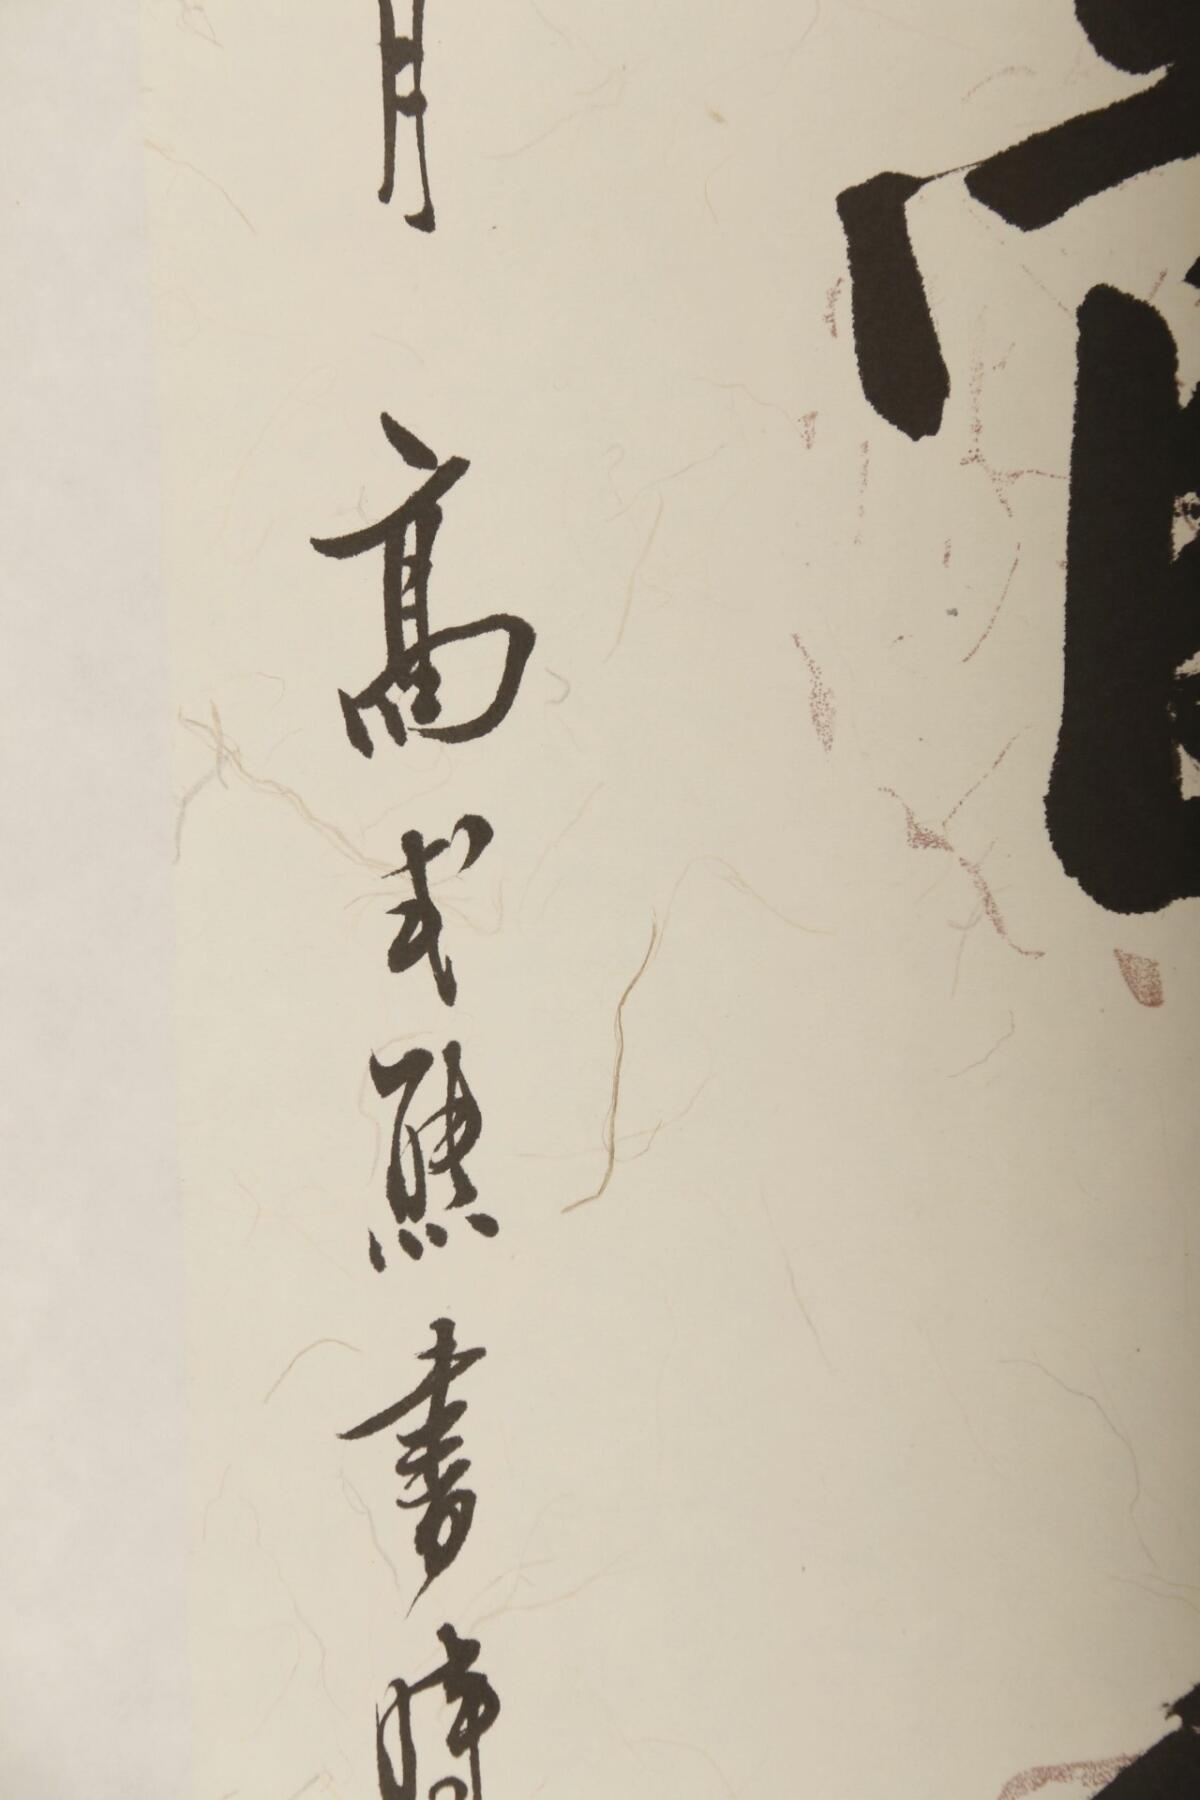 月高式熊書時